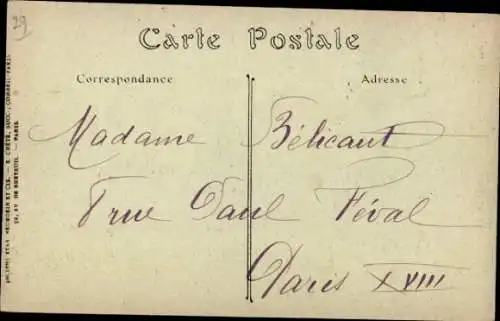 29
Carte Postale
Correspondance
Adresse
Madame Bélicant
7 rue Paul Féval
Paris XVIII